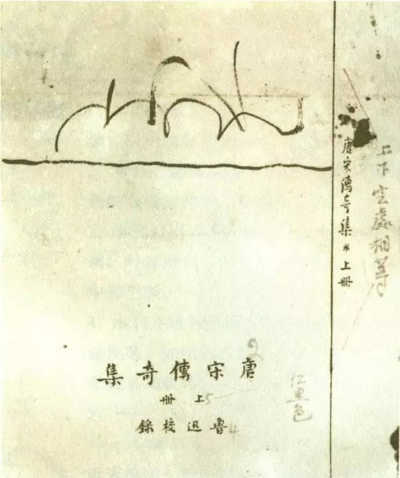 上下空處相等
唐宋傳奇集 * 上冊
唐宋傳奇集 2
上冊 5
魯迅校錄 4